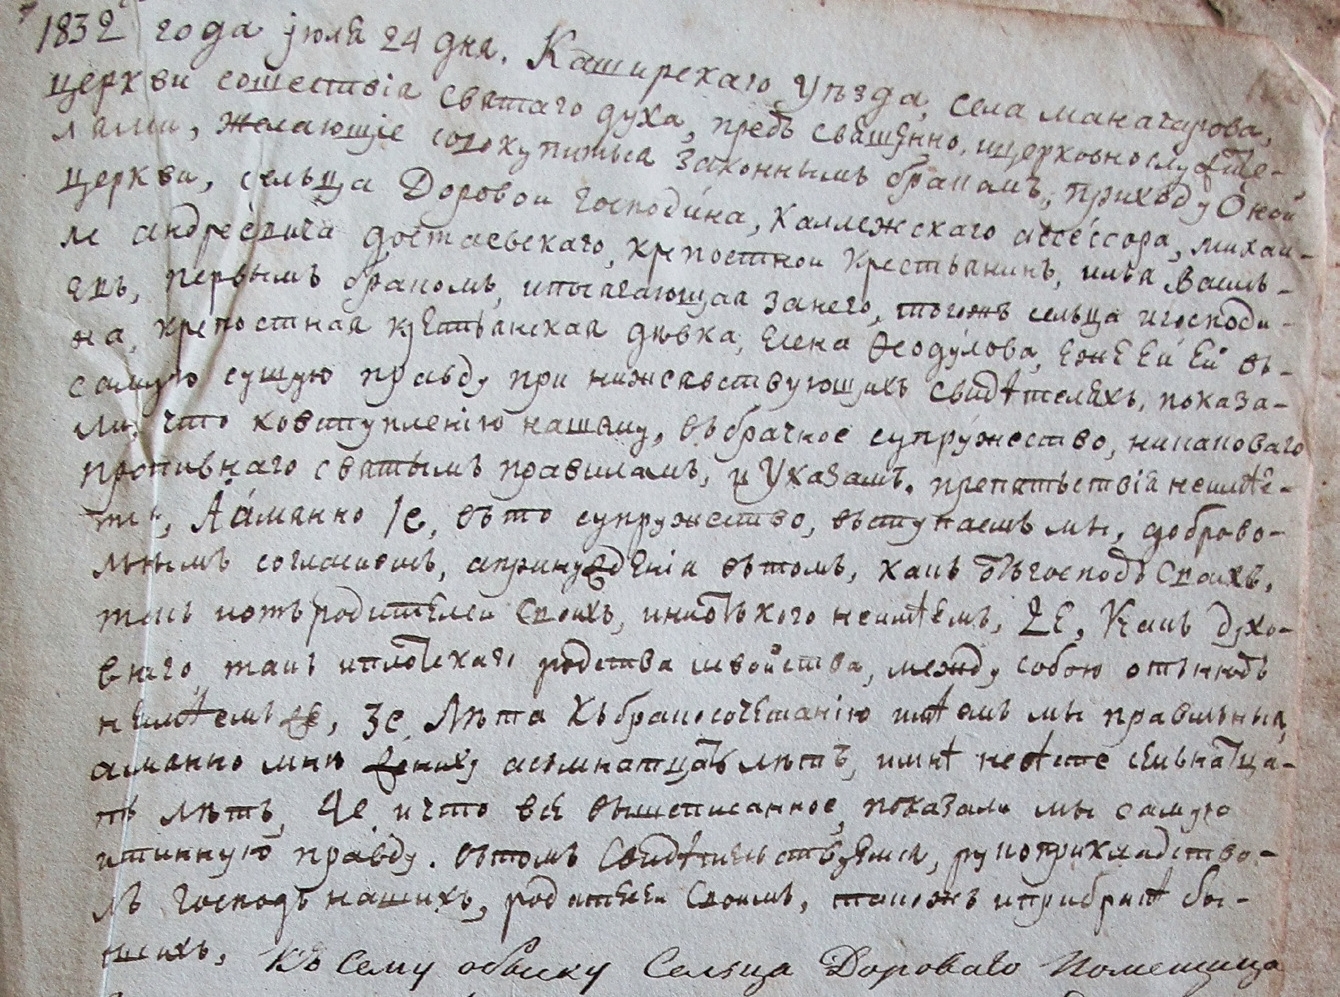 1832 года июля 24 дня. Каширскаго уѣзда, села маначарова,
церкви сошествія святаго духа, предъ священно, ицерковнослужите-
лями, желающіе совокупиться законнымъ бракомъ, приходу оной
церкви, сельца Доровой господина, Коллежскаго ассессора, михаи-
ла андреевича достаевскаго, крѣпостной крестьянинъ, илья василь-
евъ, первымъ бракомъ, ипосягающая занего, тогожъ сельца игосподи-
на, крѣпостная крестьянская дѣвка, Елена Ѳеодулова, еже ей ей въ
самую сущую правду при нижеявствующихъ свидѣтеляхъ, показа-
ли, что ковступленію нашему, въбрачное супружество, никаковаго
противнаго святымъ правиламъ, и указамъ. препятьствія неимѣе-
тся, Аименно 1е, въто супружество, въступаемъ мы, доброво-
льнымъ согласиемъ, апринуждения втомъ, какъ отъгосподъ своихъ,
такъ иотъродителей своихъ, иниотъкого неимѣемъ, 2е, какъ духо-
внаго, такъ иплотскаго родства исвойства, между собою отънюдь
неимѣемъ, 3е, Лѣта къбракосочетанію имѣемъ мы правильныя,
аименно мнѣ жениху осьмнатцать лѣтъ, имнѣ невѣсте семьнатца-
ть лѣтъ, 4е, ичто всё вышеписанное, показали мы самую
истинную правду. втомъ свидѣтельствуемся, рукоприкладство-
мъ господъ нашихъ, родителей своихъ, такожъ иприбракѣ бы-
шихъ, Къ сему обыску сельца Дороваго помещица